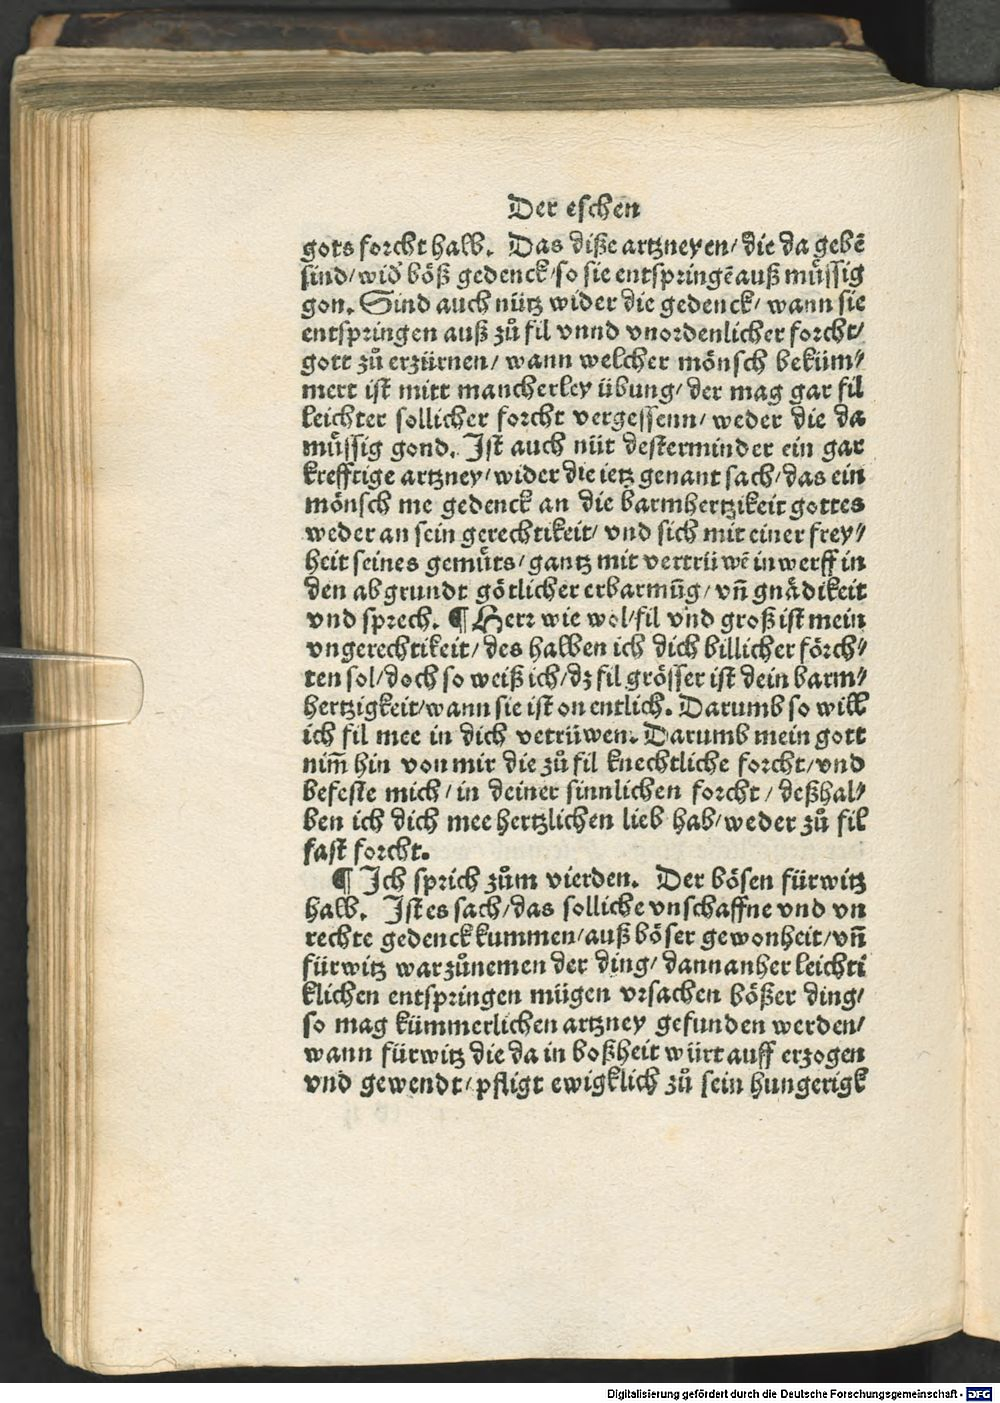 Der eschen
gots forcht halb. Das diße artzneyen/ die da gebē
sind/ wid̛ böß gedenck/ so sie entspringē auß mu̇ssig
gon. Sind auch nütz wider die gedenck/ wann sie
entspringen auß zů fil vnnd vnordenlicher forcht/
gott zů erzürnen/ wann welcher mönsch beküm⸗
mert ist mitt mancherley übung/ der mag gar fil
leichter sollicher forcht vergessenn/ weder die da
mu̇ssig gond. Ist auch nüt desterminder ein gar
krefftige artzney/ wider die ietz genant sach/ das ein
mönsch me gedenck an die barmhertzikeit gottes
weder an sein gerechtikeit/ vnd sich mit einer frey⸗
heit seines gemu̇ts/ gantz mit vertrüwē inwerff in
den abgrundt götlicher erbarmūg/ vn̄ gnädikeit
vnd sprech. ¶ Herr wie wol/ fil vnd groß ist mein
vngerechtikeit/ des halben ich dich billicher förch⸗
ten sol/ doch so weiß ich/ dz fil grösser ist dein barm⸗
hertzigkeit/ wann sie ist on entlich. Darumb so will
ich fil mee in dich vetrüwen. Darumb mein gott
nim̄ hin von mir die zů fil knechtliche forcht/ vnd
befeste mich/ in deiner sinnlichen forcht/ deßhal⸗
ben ich dich mee hertzlichen lieb hab/ weder zů fil
fast forcht.
¶ Ich sprich zům vierden. Der bösen fürwitz
halb. Ist es sach/ das solliche vnschaffne vnd vn
rechte gedenck kummen/ auß böser gewonheit/ vn̄
fürwitz war zůnemen der ding/ dannanher leichti
klichen entspringen mügen vrsachen bößer ding/
so mag kümmerlichen artzney gefunden werden/
wann fürwitz die da in boßheit würt auff erzogen
vnd gewendt/ pfligt ewigklich zů sein hungerigk
Digitalisierung gefördert durch die Deutsche Forschungsgemeinschaft - DFG